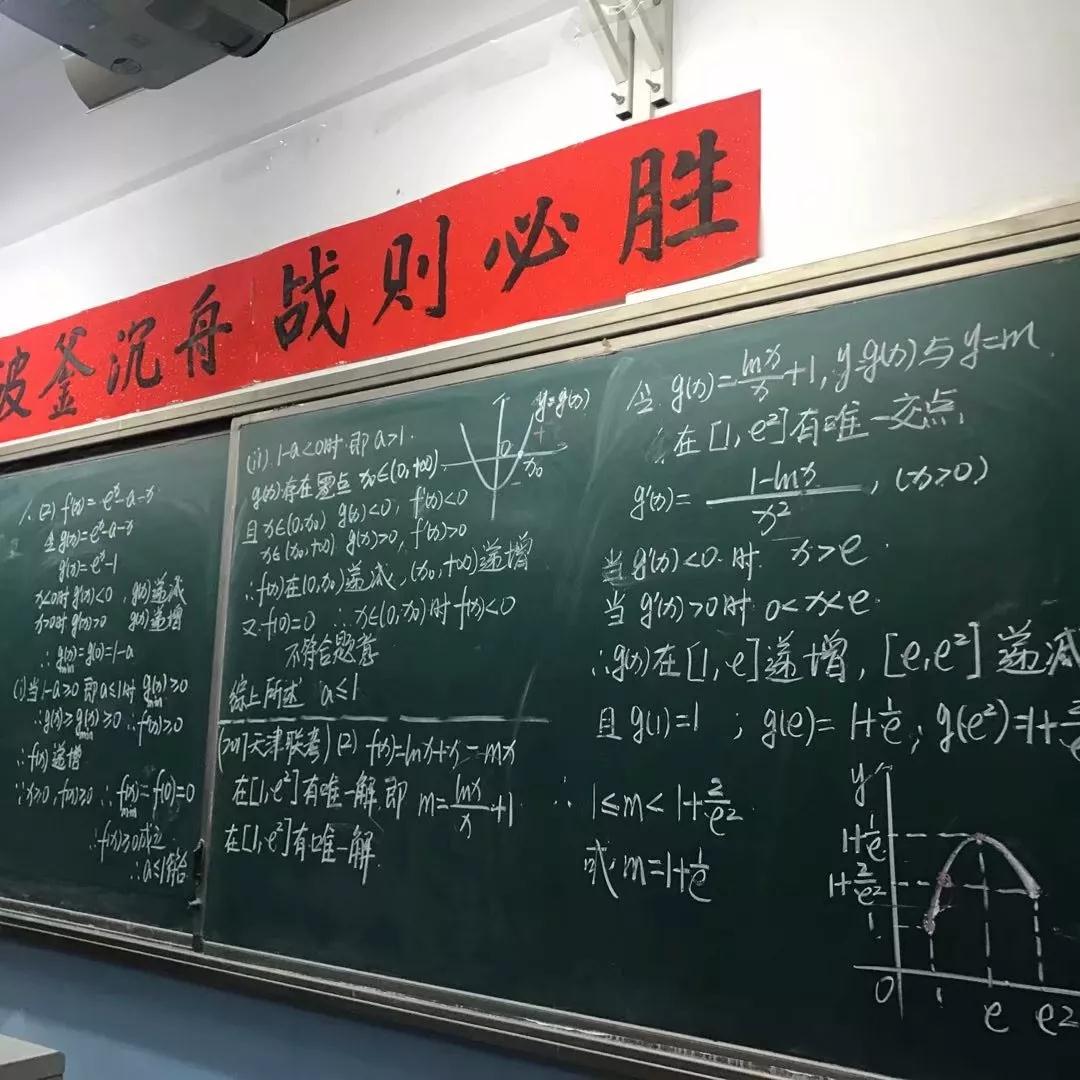 破釜沉舟 战则必胜
1.(2) f'(x)=e^x-a-x
令g(x)=e^x-a-x
g'(x)=e^x-1
x<0时g'(x)<0, g(x)递减
x>0时g'(x)>0 g(x)递增
∴g(x)min=g(0)=1-a
(i)当1-a≥0即a≤1时g(x)≥0
∴g(x)≥g(x)min≥0 ∴f'(x)≥0
∴f(x)递增
∵x≥0, f(x)≥0 ∴f(x)min=f(0)=0
∴f(x)≥0成立
∴a≤1符合
(ii) 1-a<0时即a>1.
g(x)存在零点x₀∈(0,+∞)
且x∈(0,x₀) g(x)<0, f'(x)<0
x∈(x₀,+∞) g(x)>0, f'(x)>0
∴f(x)在(0,x₀)递减,(x₀,+∞)递增
又f(0)=0 ∴x∈(0,x₀)时f(x)<0
不符合题意
综上所述 a≤1
y=g(x)
0
+
-
x₀
(2017天津联考)(2) f(x)=lnx+x=mx
在[1,e²]有唯一解即 m=lnx/x+1
在[1,e²]有唯一解.
令g(x)=lnx/x+1, y=g(x)与y=m
在[1,e²]有唯一交点
g'(x)=(1-lnx)/x², (x>0)
当g'(x)<0时 x>e.
当g'(x)>0时 0<x<e.
∴g(x)在[1,e]递增,[e,e²]递减
且g(1)=1; g(e)=1+1/e; g(e²)=1+2/e
∴1≤m<1+2/e²
或m=1+1/e
y
1+1/e
1+2/e²
1
0 1 e e2